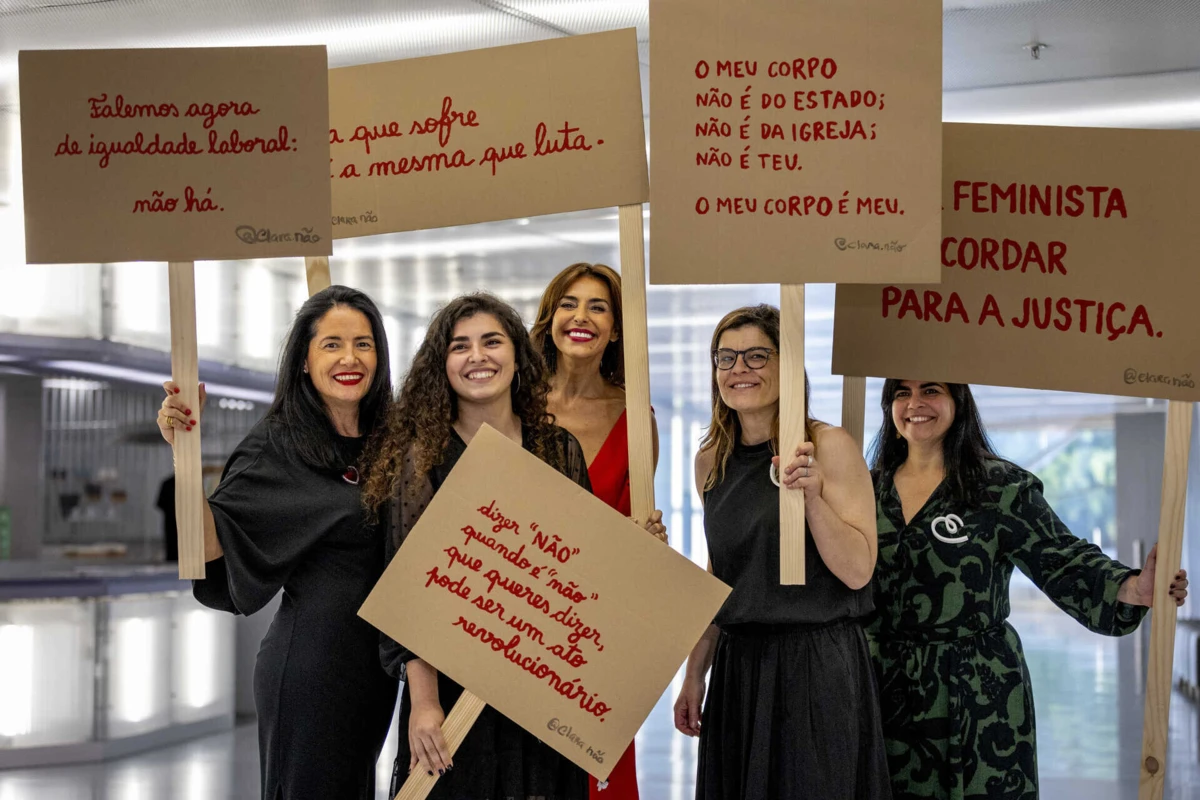 Falemos agora
de igualdade laboral:
não há.
@Clara não
a que sofre
a mesma que luta.
clara não
O MEU CORPO
NÃO É DO ESTADO;
NÃO É DA IGREJA;
NÃO É TEU.
O MEU CORPO É MEU.
@clara.não
FEMINISTA
CORDAR
PARA A JUSTIÇA.
@clara não
dizer "NÃO"
quando é "não"
que queres dizer,
pode ser um ato
revolucionário.
@Clara não